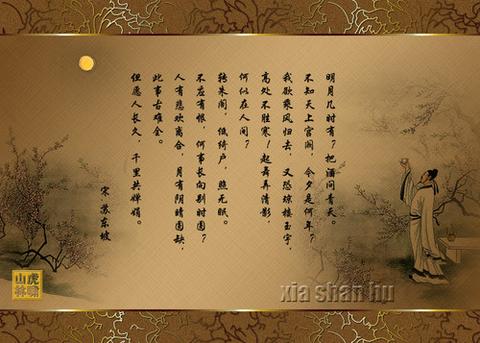 明月几时有？把酒问青天。
不知天上宫阙，今夕是何年？
我欲乘风归去，又恐琼楼玉宇，
高处不胜寒！起舞弄清影，
何似在人间？
转朱阁，低绮户，照无眠。
不应有恨，何事长向别时圆？
人有悲欢离合，月有阴晴圆缺，
此事古难全。
但愿人长久，千里共婵娟。
宋 苏东坡
虎啸
山林
xia shan hu